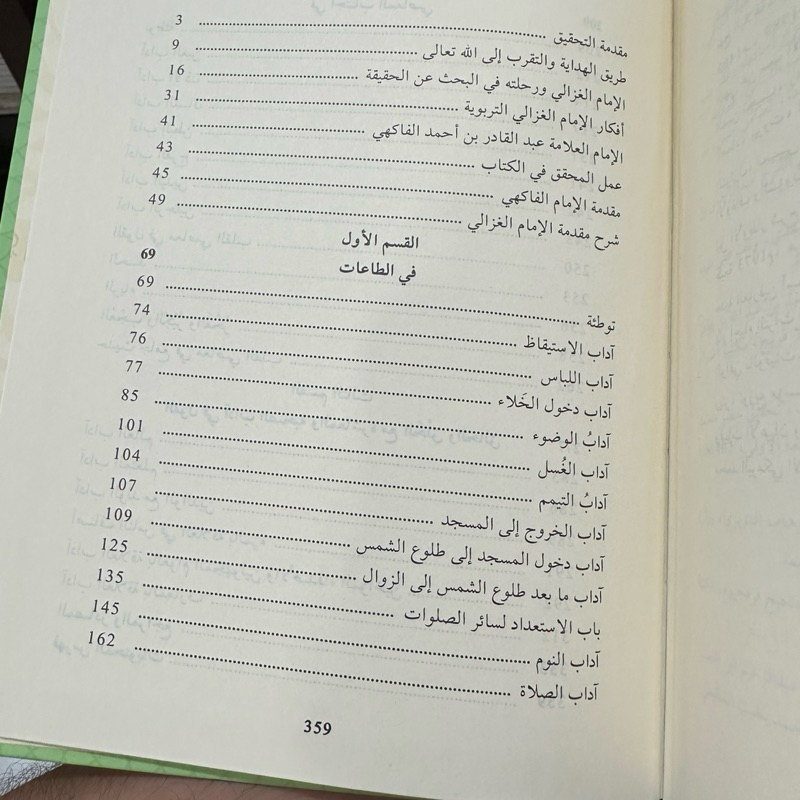 مقدمة التحقيق ........ 3
طريق الهداية والتقرب إلى الله تعالى ........ 9
الإمام الغزالي ورحلته في البحث عن الحقيقة ........ 16
أفكار الإمام الغزالي التربوية ........ 31
الإمام العلامة عبد القادر بن أحمد الفاكهي ........ 41
عمل المحقق في الكتاب ........ 43
مقدمة الإمام الفاكهي ........ 45
شرح مقدمة الإمام الغزالي ........ 49
القسم الأول
في الطاعات 69
توطئة ........ 69
آداب الاستيقاظ ........ 74
آداب اللباس ........ 76
آداب دخول الخَلاء ........ 77
آدابُ الوضوء ........ 85
آداب الغُسل ........ 101
آدابُ التيمم ........ 104
آداب الخروج إلى المسجد ........ 107
آداب دخول المسجد إلى طلوع الشمس ........ 109
آداب ما بعد طلوع الشمس إلى الزوال ........ 125
باب الاستعداد لسائر الصلوات ........ 135
آداب النوم ........ 145
آداب الصلاة ........ 162
359